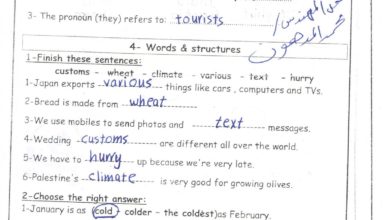 3- The pronoun (they) refers to: tourists
4- Words & structures
1-Finish these sentences:
customs - wheat - climate - various - text - hurry
1-Japan exports various things like cars , computers and TVs.
2-Bread is made from wheat
3-We use mobiles to send photos and text messages.
4-Wedding customs are different all over the world.
5-We have to hurry up because we're very late.
6-Palestine's climate is very good for growing olives.
2-Choose the right answer:
1-January is as (cold - colder - the coldest)as February.